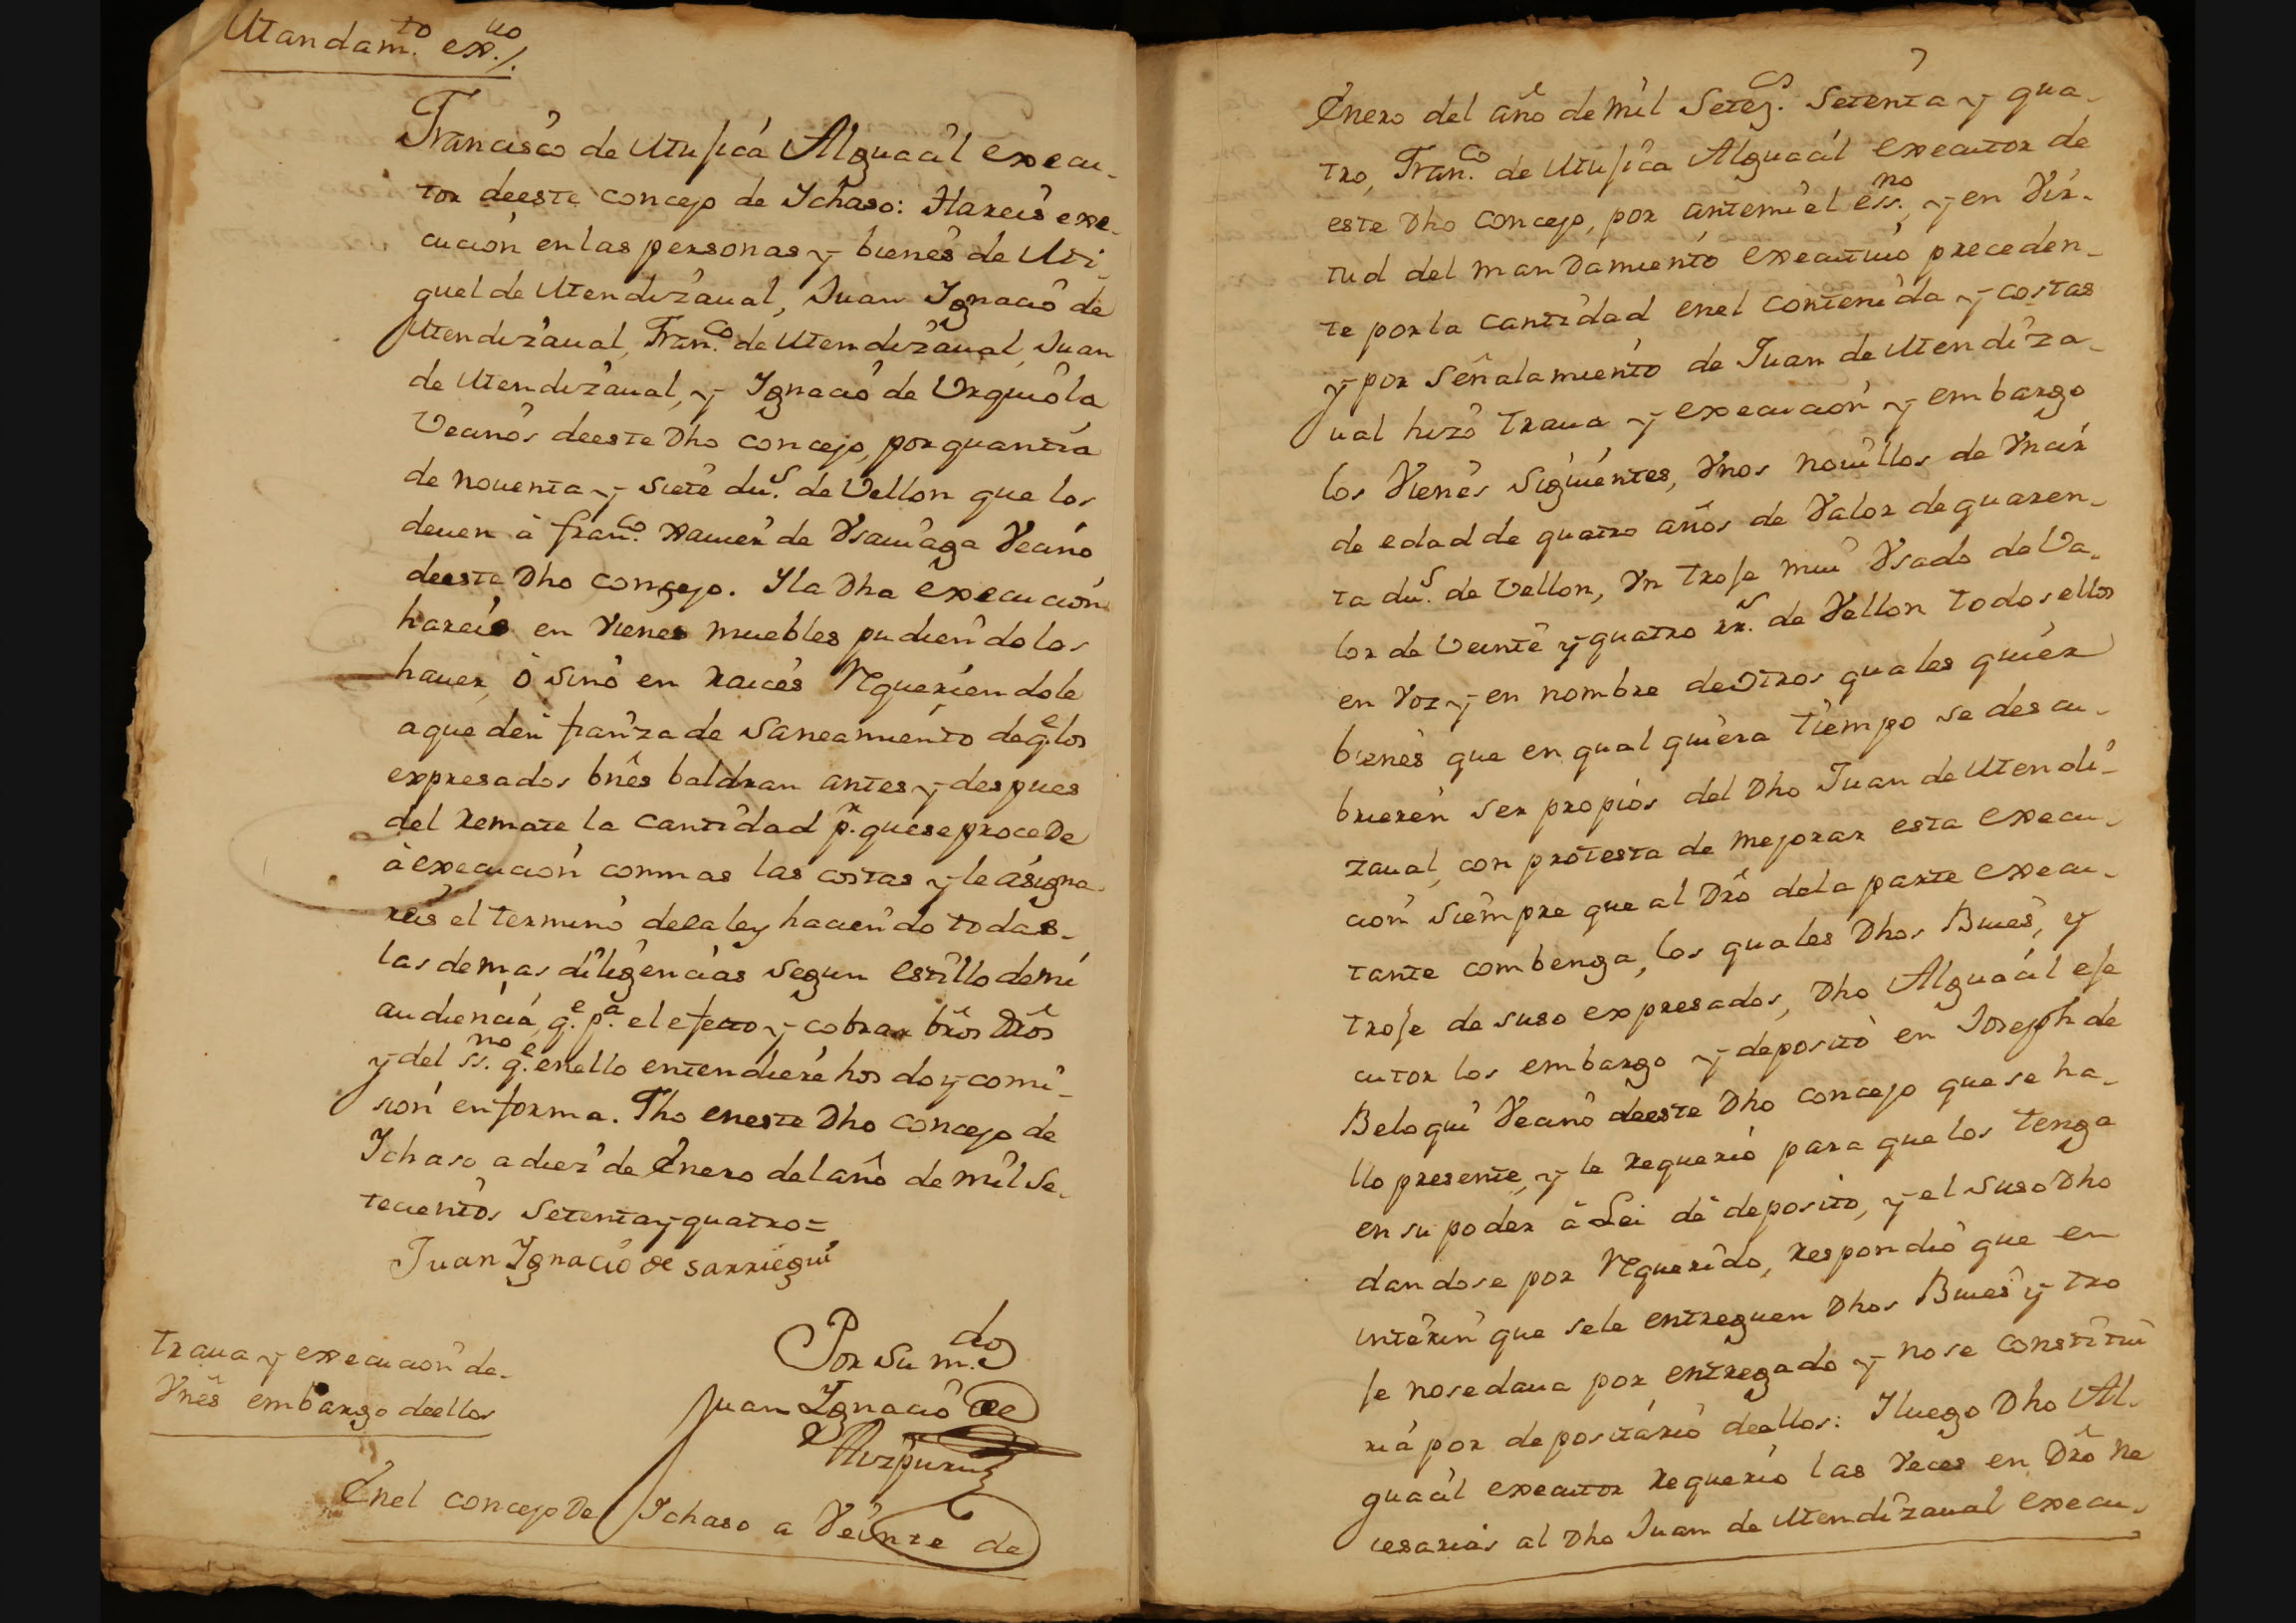 Mandam.to ex.uo/.
Francisco de Mujica Alguacil execu-
tor deeste concejo de Ichaso: Hareis exe-
cucion en las personas y bienes de Mi-
guel de Mendizaual, Juan Ignacio de
Mendizaual, Fran.co de Mendizaual, Juan
de Mendizaual, y Ignacio de Urquiola
Vecinos deeste Dho concejo, por quantia
de nouenta y siete du.s de Vellon que los
deuen à fran.co Xauier de Ysauiaga Vecino
deeste Dho concejo. Ila Dha execucion
hareis en vienes muebles pudiendolos
hauer, ò sino en raices requeriendole
aque den fianza de Saneamiento de q.e los
expresados bnês baldran antes y despues
del remate la cantidad p.r quese procede
à execucion conmas las costas y le asigna-
reis el termino dela ley haciendo todas-
las demas diligencias segun estillo de mi
audiencia, q.e p.a el efecto y cobrar brôs Drôs
y del ss.no q.e enello entendiere hos doy comi-
sion en forma. Fho eneste Dho concejo de
Ichaso a diez de Enero del año de mil Se-
tecientos Setenta y quatro=
Juan Ignacio de Sarriegui
Por su m.do
Juan Ignacio de
Aizpuru
traua y execucion de-
Vnês embargo deellos
Enel concejo De Ichaso a Veinte de
Enero del año de mil Setez.os Setenta y qua-
tro, Fran.co de Mujica Alguacil executor de
este Dho concejo, por antemi el ess.no, y en vir-
tud del mandamiento executiuo preceden-
te por la cantidad enel contenida y costas
y por Señalamiento de Juan de Mendiza-
ual hizo traua y execucion y embargo
los Vienes Siguientes, Vnos nouillos de Vncir
de edad de quatro años de Valor de quaren-
ta du.s de vellon, Vn troje mui Vsado de Va-
lor de Veinte y quatro rr.s de Vellon todos ellos
en Voz y en nombre de otros quales quier
bienes que en qual quiera tiempo se descu-
brieren ser propios del Dho Juan de Mendi-
zaual, con protesta de mejorar esta execu-
cion siempre que al Drô dela parte execu-
tante combenga, los quales Dhos Bueês, y
troje de suso expresados, Dho Alguacil eje
cutor los embargo y deposito en Joseph de
Beloqui Vecino deeste Dho concejo que se ha-
llo presente, y le requerio para que los tenga
en su poder à Lei de deposito, y el suso Dho
dandose por requerido, respondio que en
interin que sele entreguen Dhos Bueês y tro
je nosedaua por entregado y nose constitui
ria por depositario deellos: Iluego Dho Al-
guacil executor requerio las veces en Drô ne
cesarias al Dho Juan de Mendizaual execu-